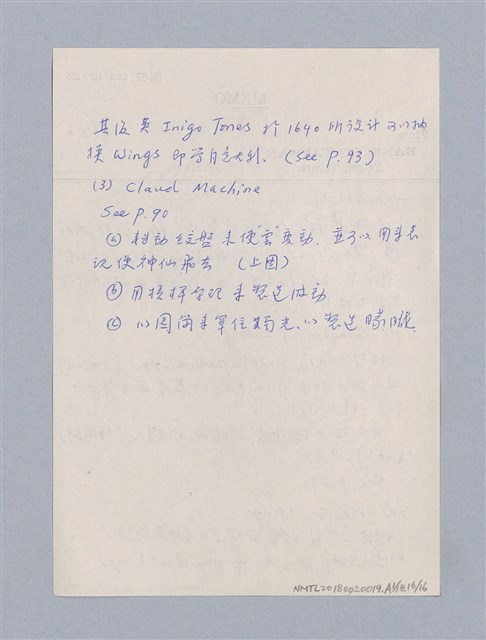 其後英 Inigo Jones 於 1640 所設計可以抽
換 Wings 即
(See P. 93)
(3) Cloud Machine
See P. 90
ⓐ 轉動絞盤來使"雲"變動. 並可以用來表
現使神仙飛去 (上圖)
ⓑ 用 來製造波動
ⓒ 以圓筒來罩住燭光、以製造朦朧.
NMTL20180020019.
16/16